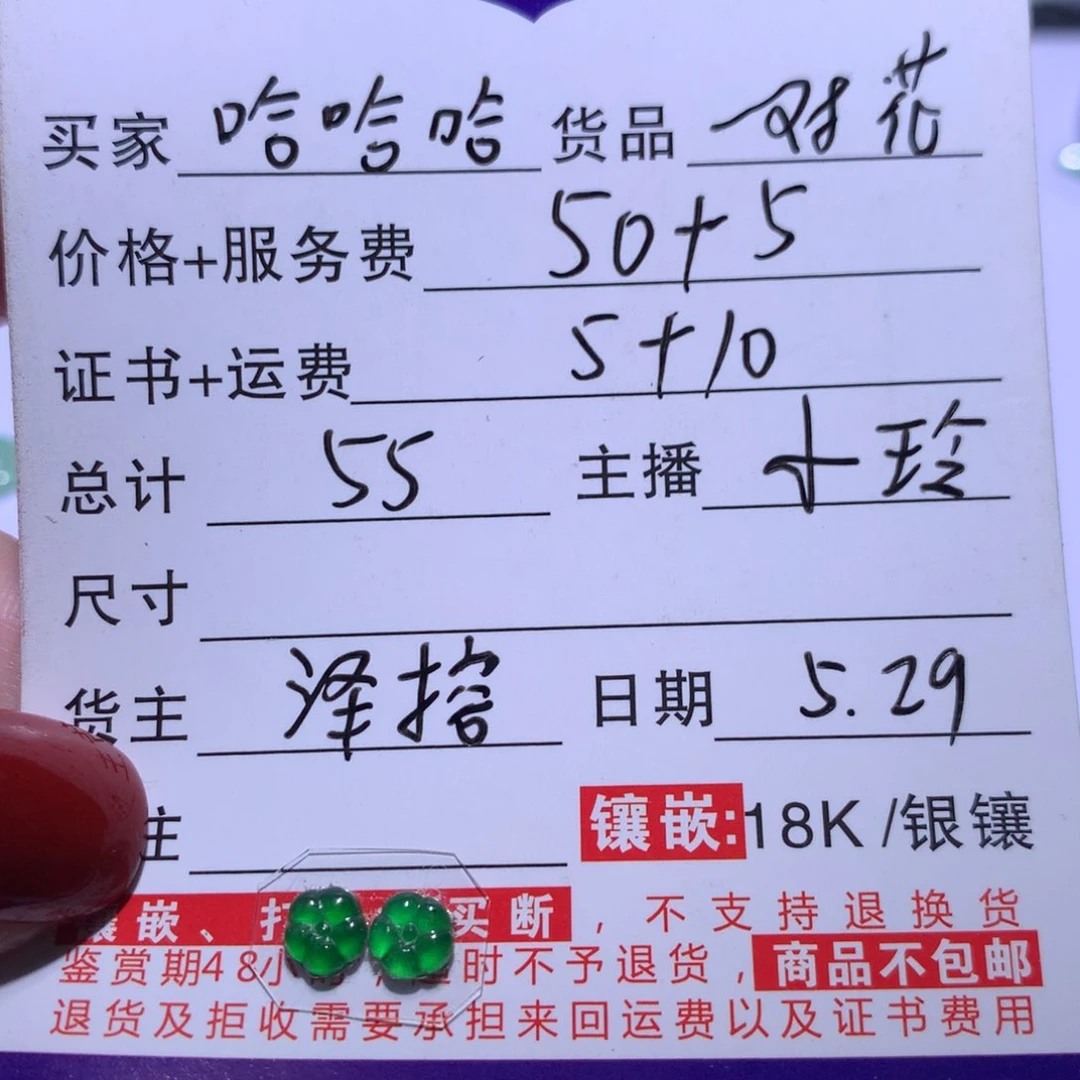 买家 哈哈哈 货品 一对花
价格+服务费 50+5
证书+运费 5+10
总计 55 主播 十玲
尺寸
货主 泽榕 日期 5.29
主 镶嵌:18K /银镶
嵌、打 买断,不支持退换货
鉴赏期48小时,超时不予退货,商品不包邮
退货及拒收需要承担来回运费以及证书费用